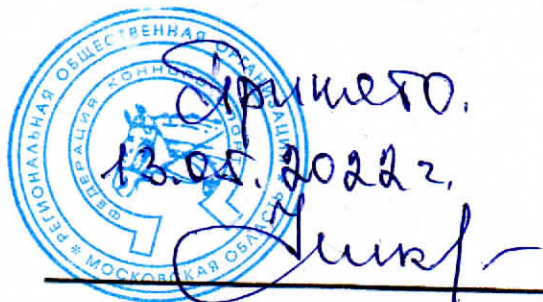 РЕГИОНАЛЬНАЯ ОБЩЕСТВЕННАЯ ОРГАНИЗАЦИЯ
* МОСКОВСКАЯ ОБЛАСТЬ *
ФЕДЕРАЦИЯ КОННОГО
Принято.
13.05.2022 г.